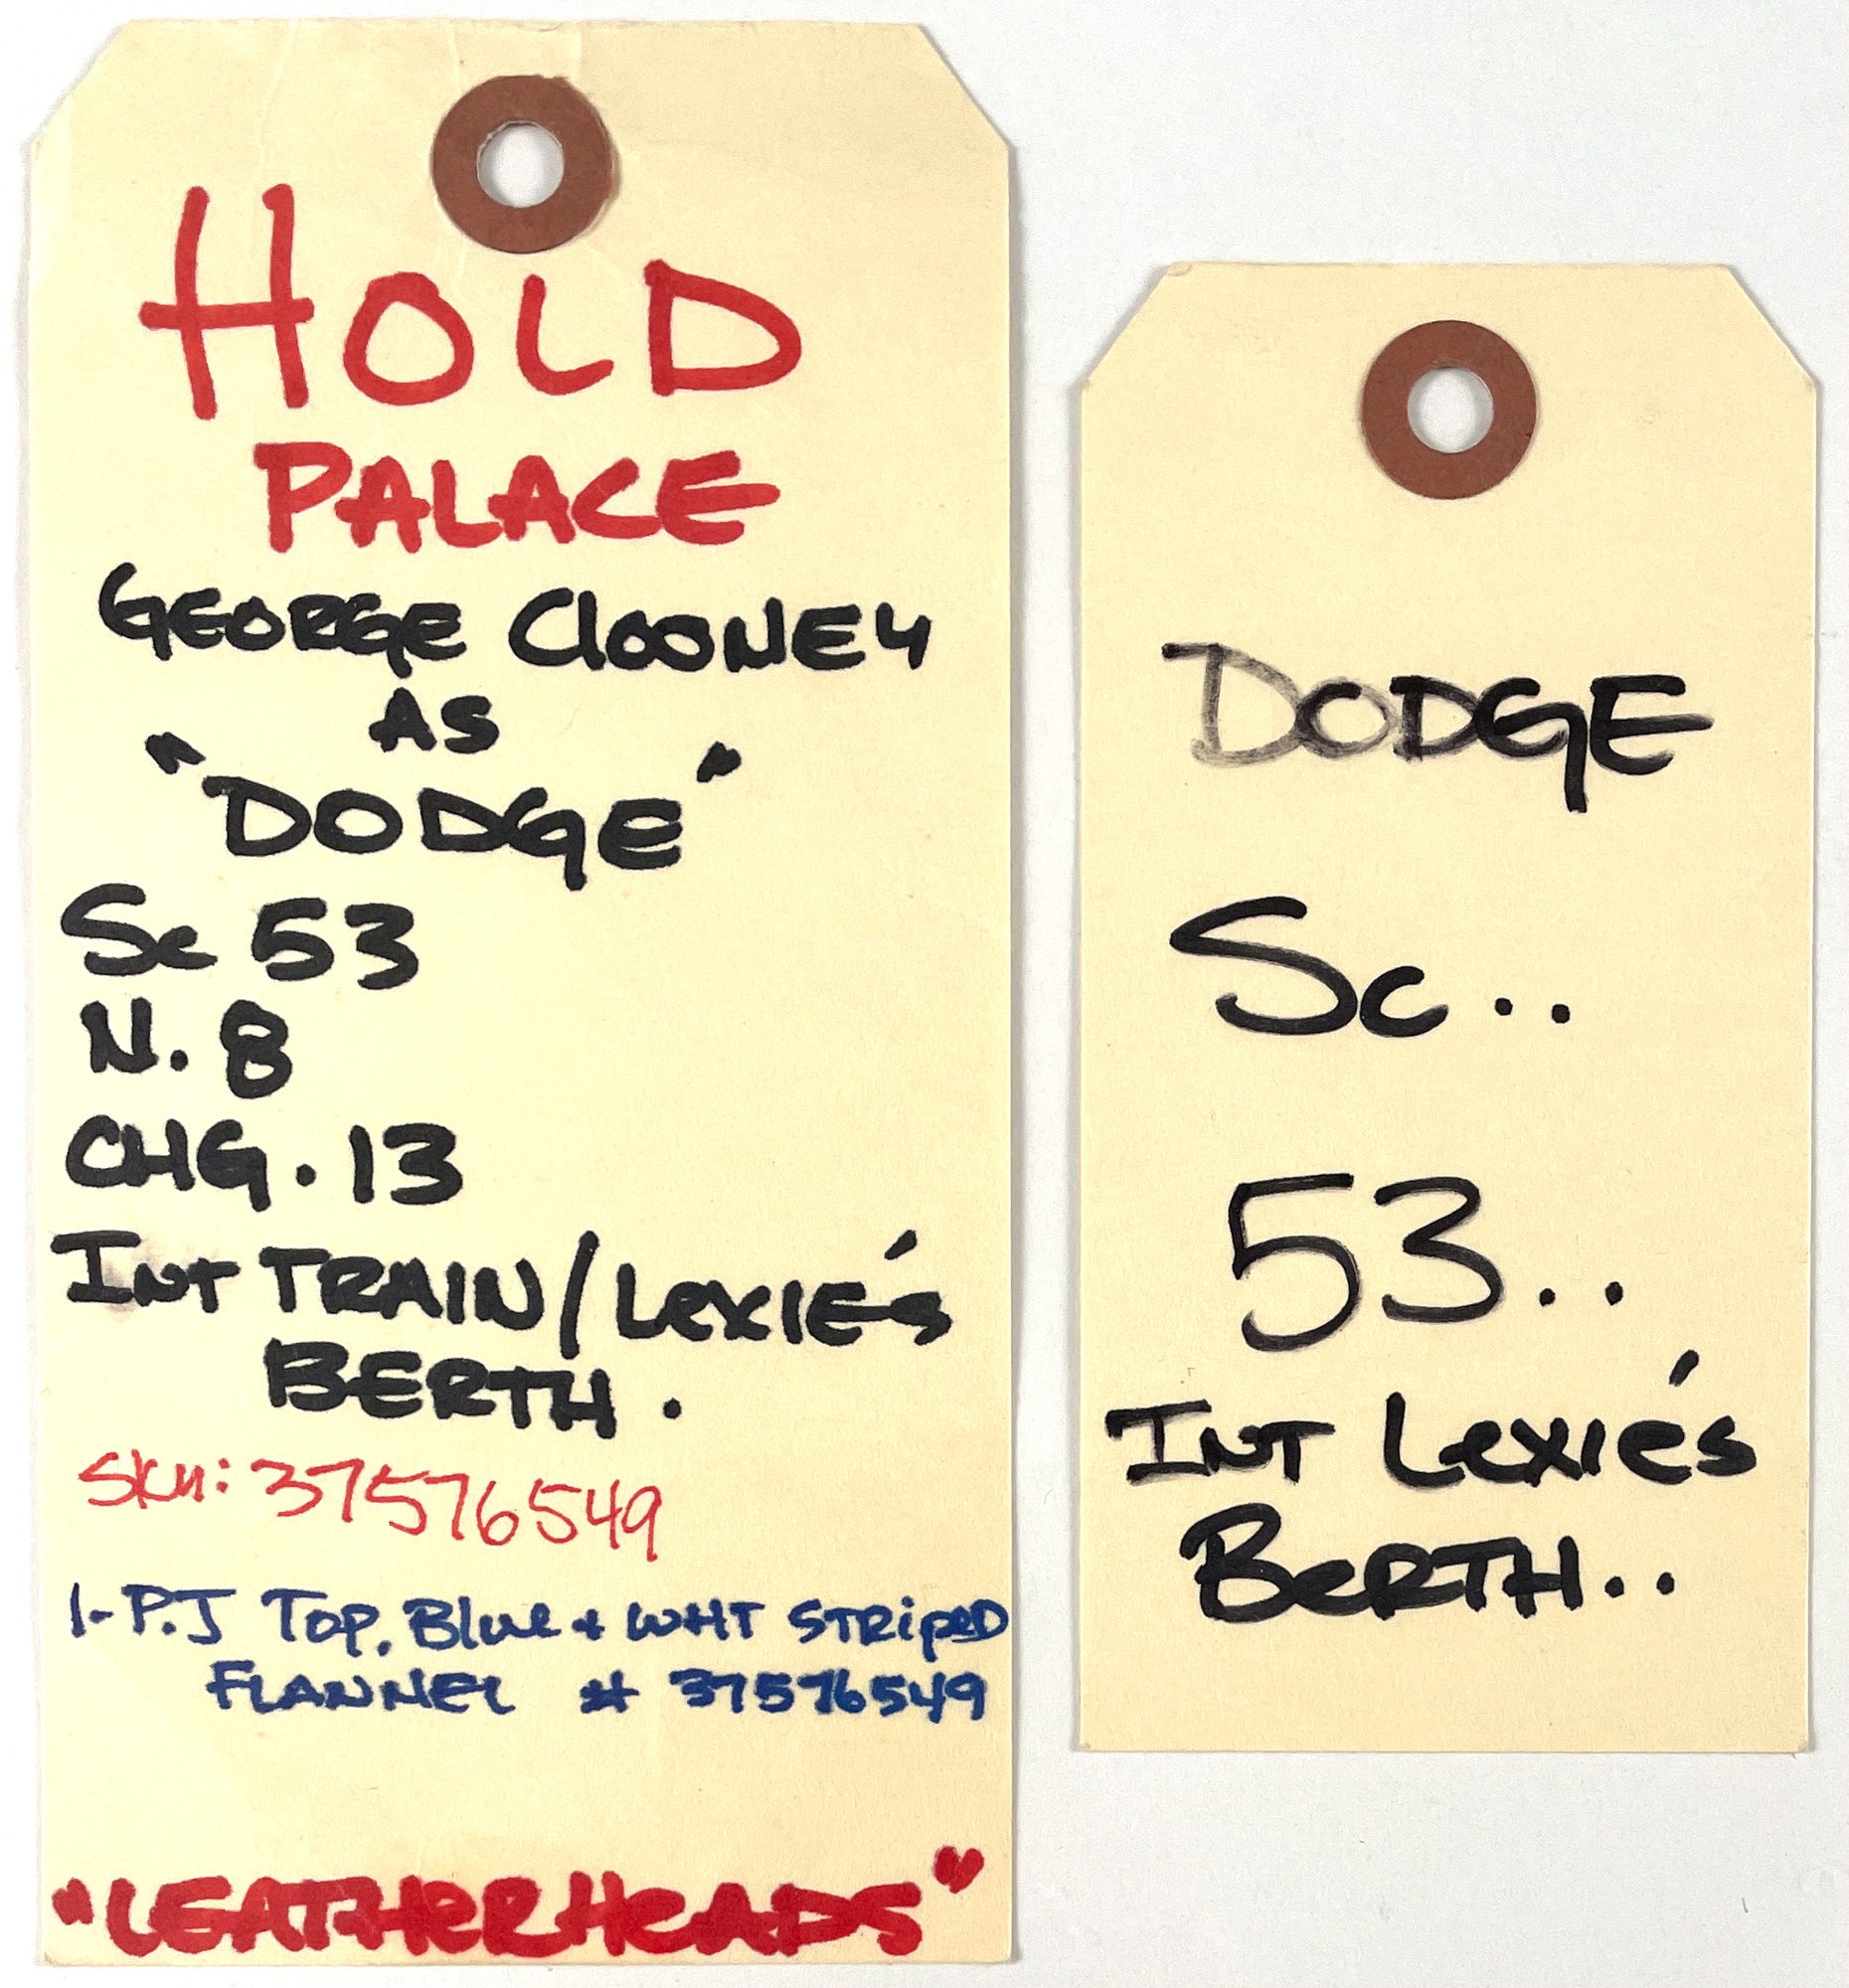 HOLD
PALACE
GEORGE ClOONEY
AS
"DODGE"
Sc 53
N. 8
CHG. 13
INT TRAIN/LeXIE's
BERTH.
Sku: 37576549
1-P.J Top. Blue + WHT STRipeD
FLANNEL # 37576549
"LEATHeRHeADS"
DODGE
Sc..
53..
INT LeXIe's
BeRTH..